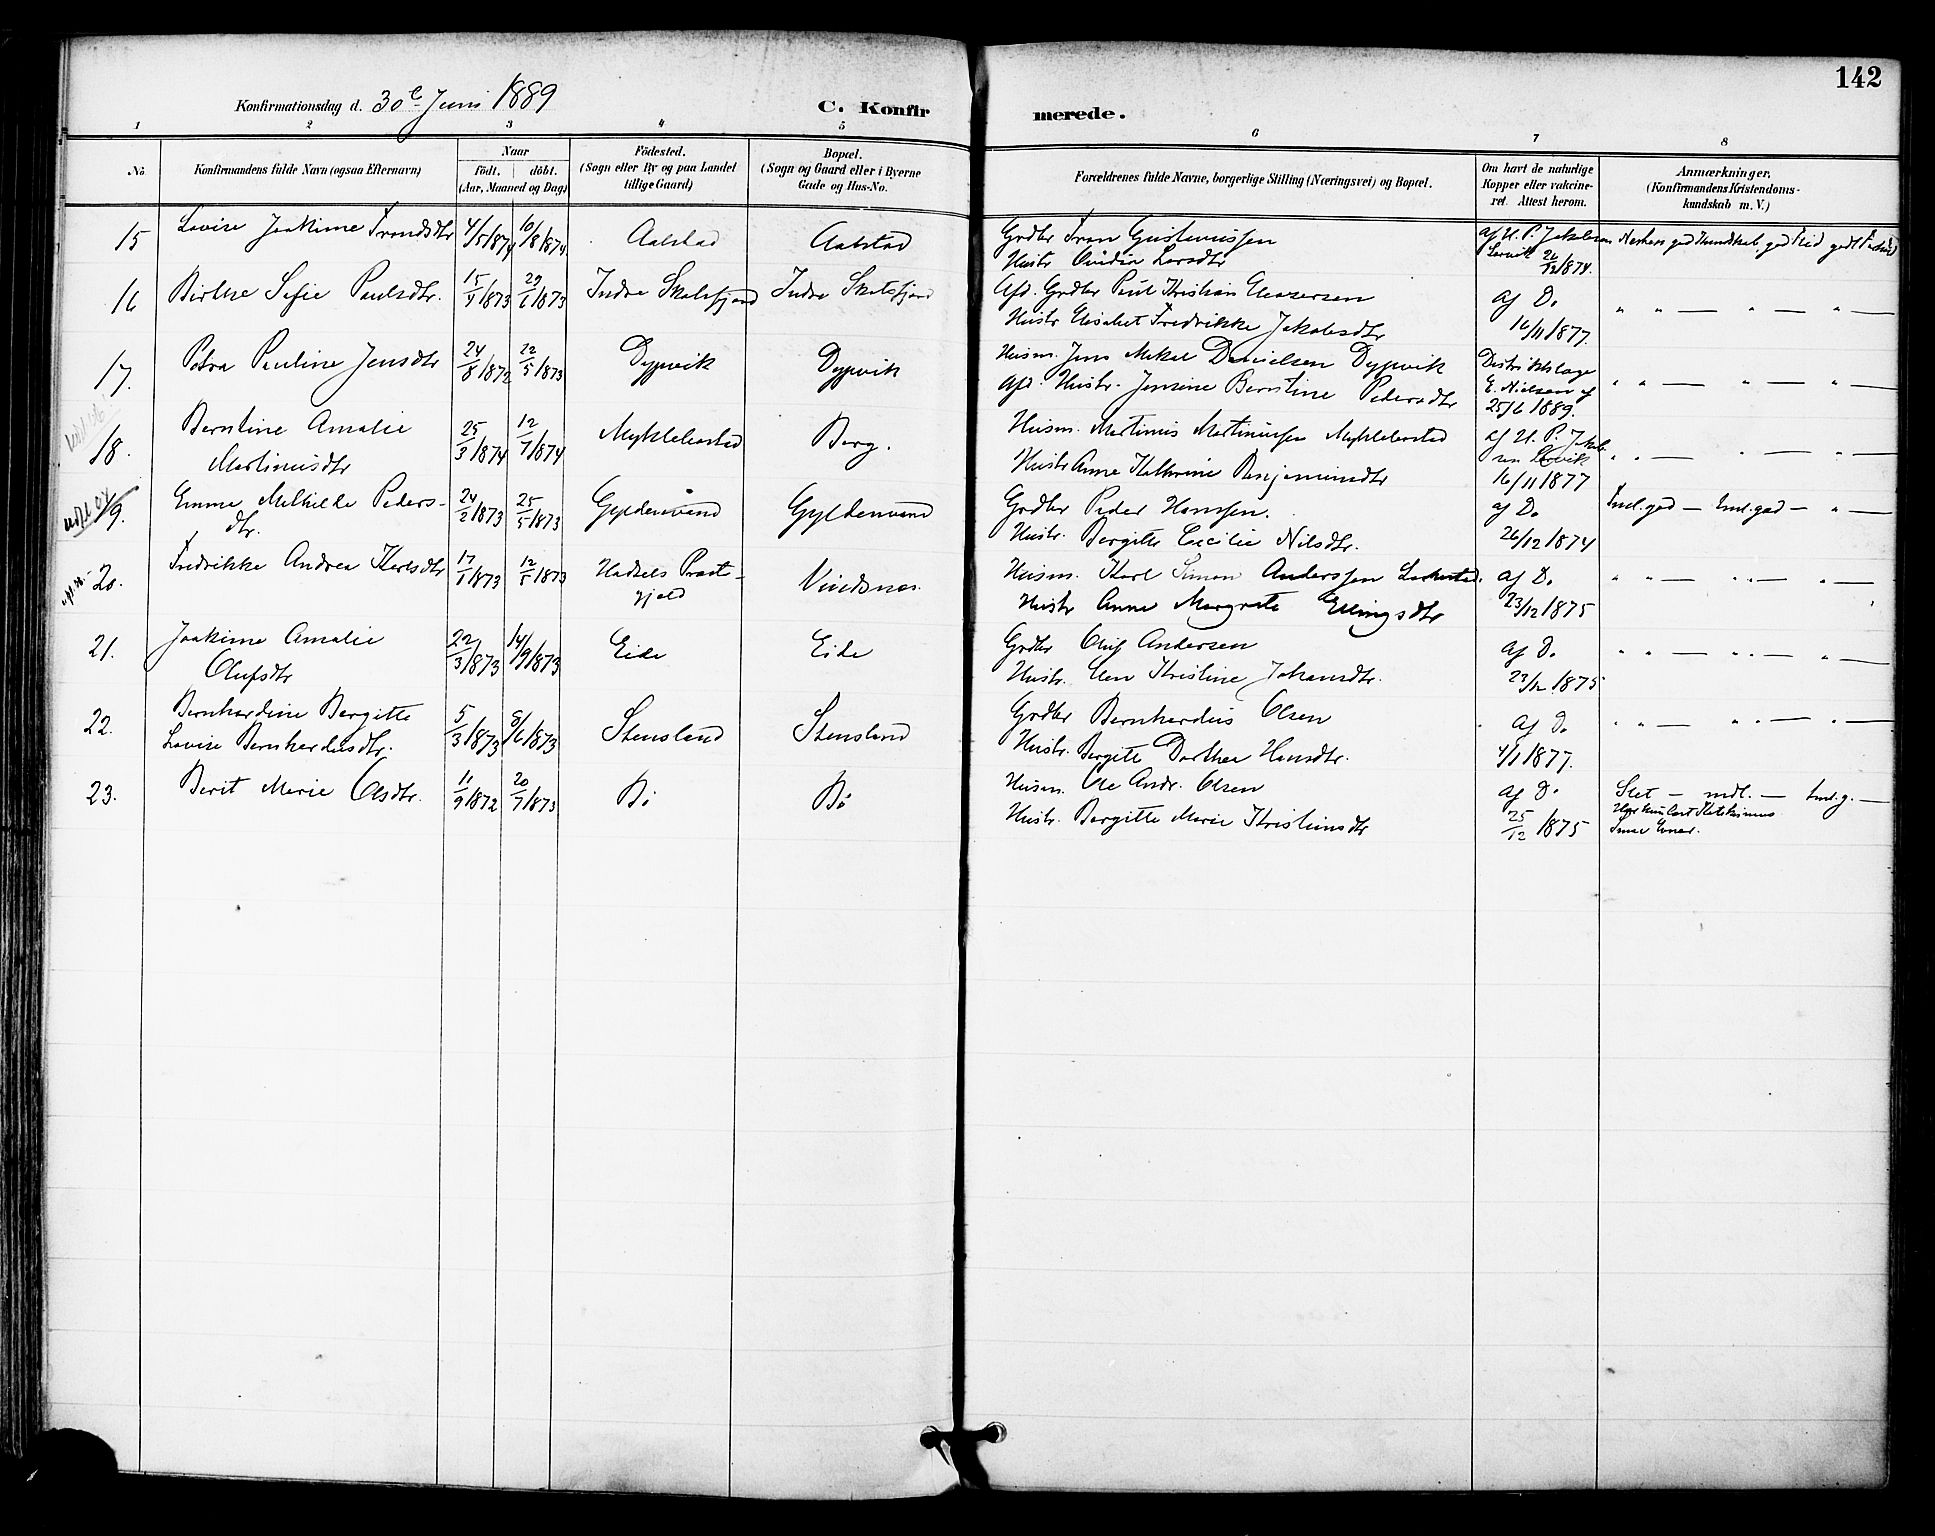 142
Konfirmationsdag d. 30te Juni 1889
C. Konfirmerede.
1 2 3 4 5 6 7 8
No
Konfirmandens fulde Navn (ogsaa Efternavn)
Naar
födt. döbt.
(Aar, Maaned og Dag)
Födested.
(Sogn eller By og paa Landet
tillige Gaard)
Bopæl.
(Sogn og Gaard eller i Byerne
Gade og Hus-No.
Forældrenes fulde Navne, borgerlige Stilling (Næringsvei) og Bopæl.
Om havt de naturlige
Kopper eller vakcine-
ret. Attest herom.
Anmærkninger.
(Konfirmandens Kristendoms-
kundskab m. V.)
15 Lovise Joakime Trondsdtr 4/5 1874 10/8 1874 Aalstad Aalstad Grdbr Tron Gustavussen af H. P. Jakobsen
Hustr Larsdtr
16 Birthe Sofie Paulsdtr. 15/4 1873 29/6 1873 Indre Skotsfjord Indre Skotsfjord Afd. Grdbr Paul Kristian Eleasersen af Do
Hustr Elisabet Fredrikke Jakobsdtr 16/11 1877.
17. Petra Pauline Jensdtr 24/8 1872 22/5 1873 Dypvik Dypvik Husm. Jens Mikal Danielsen Dypvik Distriktslæge
afd. Hustr. Jensine Berntine Pedersdtr E. Nielsen af
25/6 1889.
18. Berntine Amalie 25/3 1874 12/7 1874 Myklebostad Borg. Husm. Martinus Martinussen Myklebostad af H. P. Jakob-
Martinusdtr Hustr Anne Kathrine Benjaminsdtr sen
16/11 1877
19. Emma Mathilde Peders- 24/2 1873 25/5 1873 Gyldenvand Gyldenvand Grdbr Peder Hansen. af Do
dtr. Hustr. Bergitte Cecilie Nilsdtr. 26/12 1874
20. Fredrikke Andrea Karlsdtr 17/1 1873 12/5 1873 Hadsels Præst- Vindsnes Husm. Karl Simon Anderssen af Do
gjeld Hustr Anne Margrete Ellingsdtr 23/12 1875
21. Joakime Amalie 22/3 1873 14/9 1873 Eide Eide Grdbr Oluf Andersen af Do
Olufsdtr Hustr. Elen Kristine Johansdtr. 23/12 1875
22. Bernhardine Bergitte 5/3 1873 8/6 1873 Stensland Stensland Grdbr Bernhardus Olsen af Do
Lovise Bernhardusdtr. Hustr. Bergite Dorthea Hansdtr. 4/1 1877.
23. Berit Marie Olsdtr. 11/9 1872 20/7 1873 Bö Bö Husm. Ole Andr. Olsen af Do Slet — mdl. —
Hustr. Bergitte Marie Kristiansdtr 25/12 1875